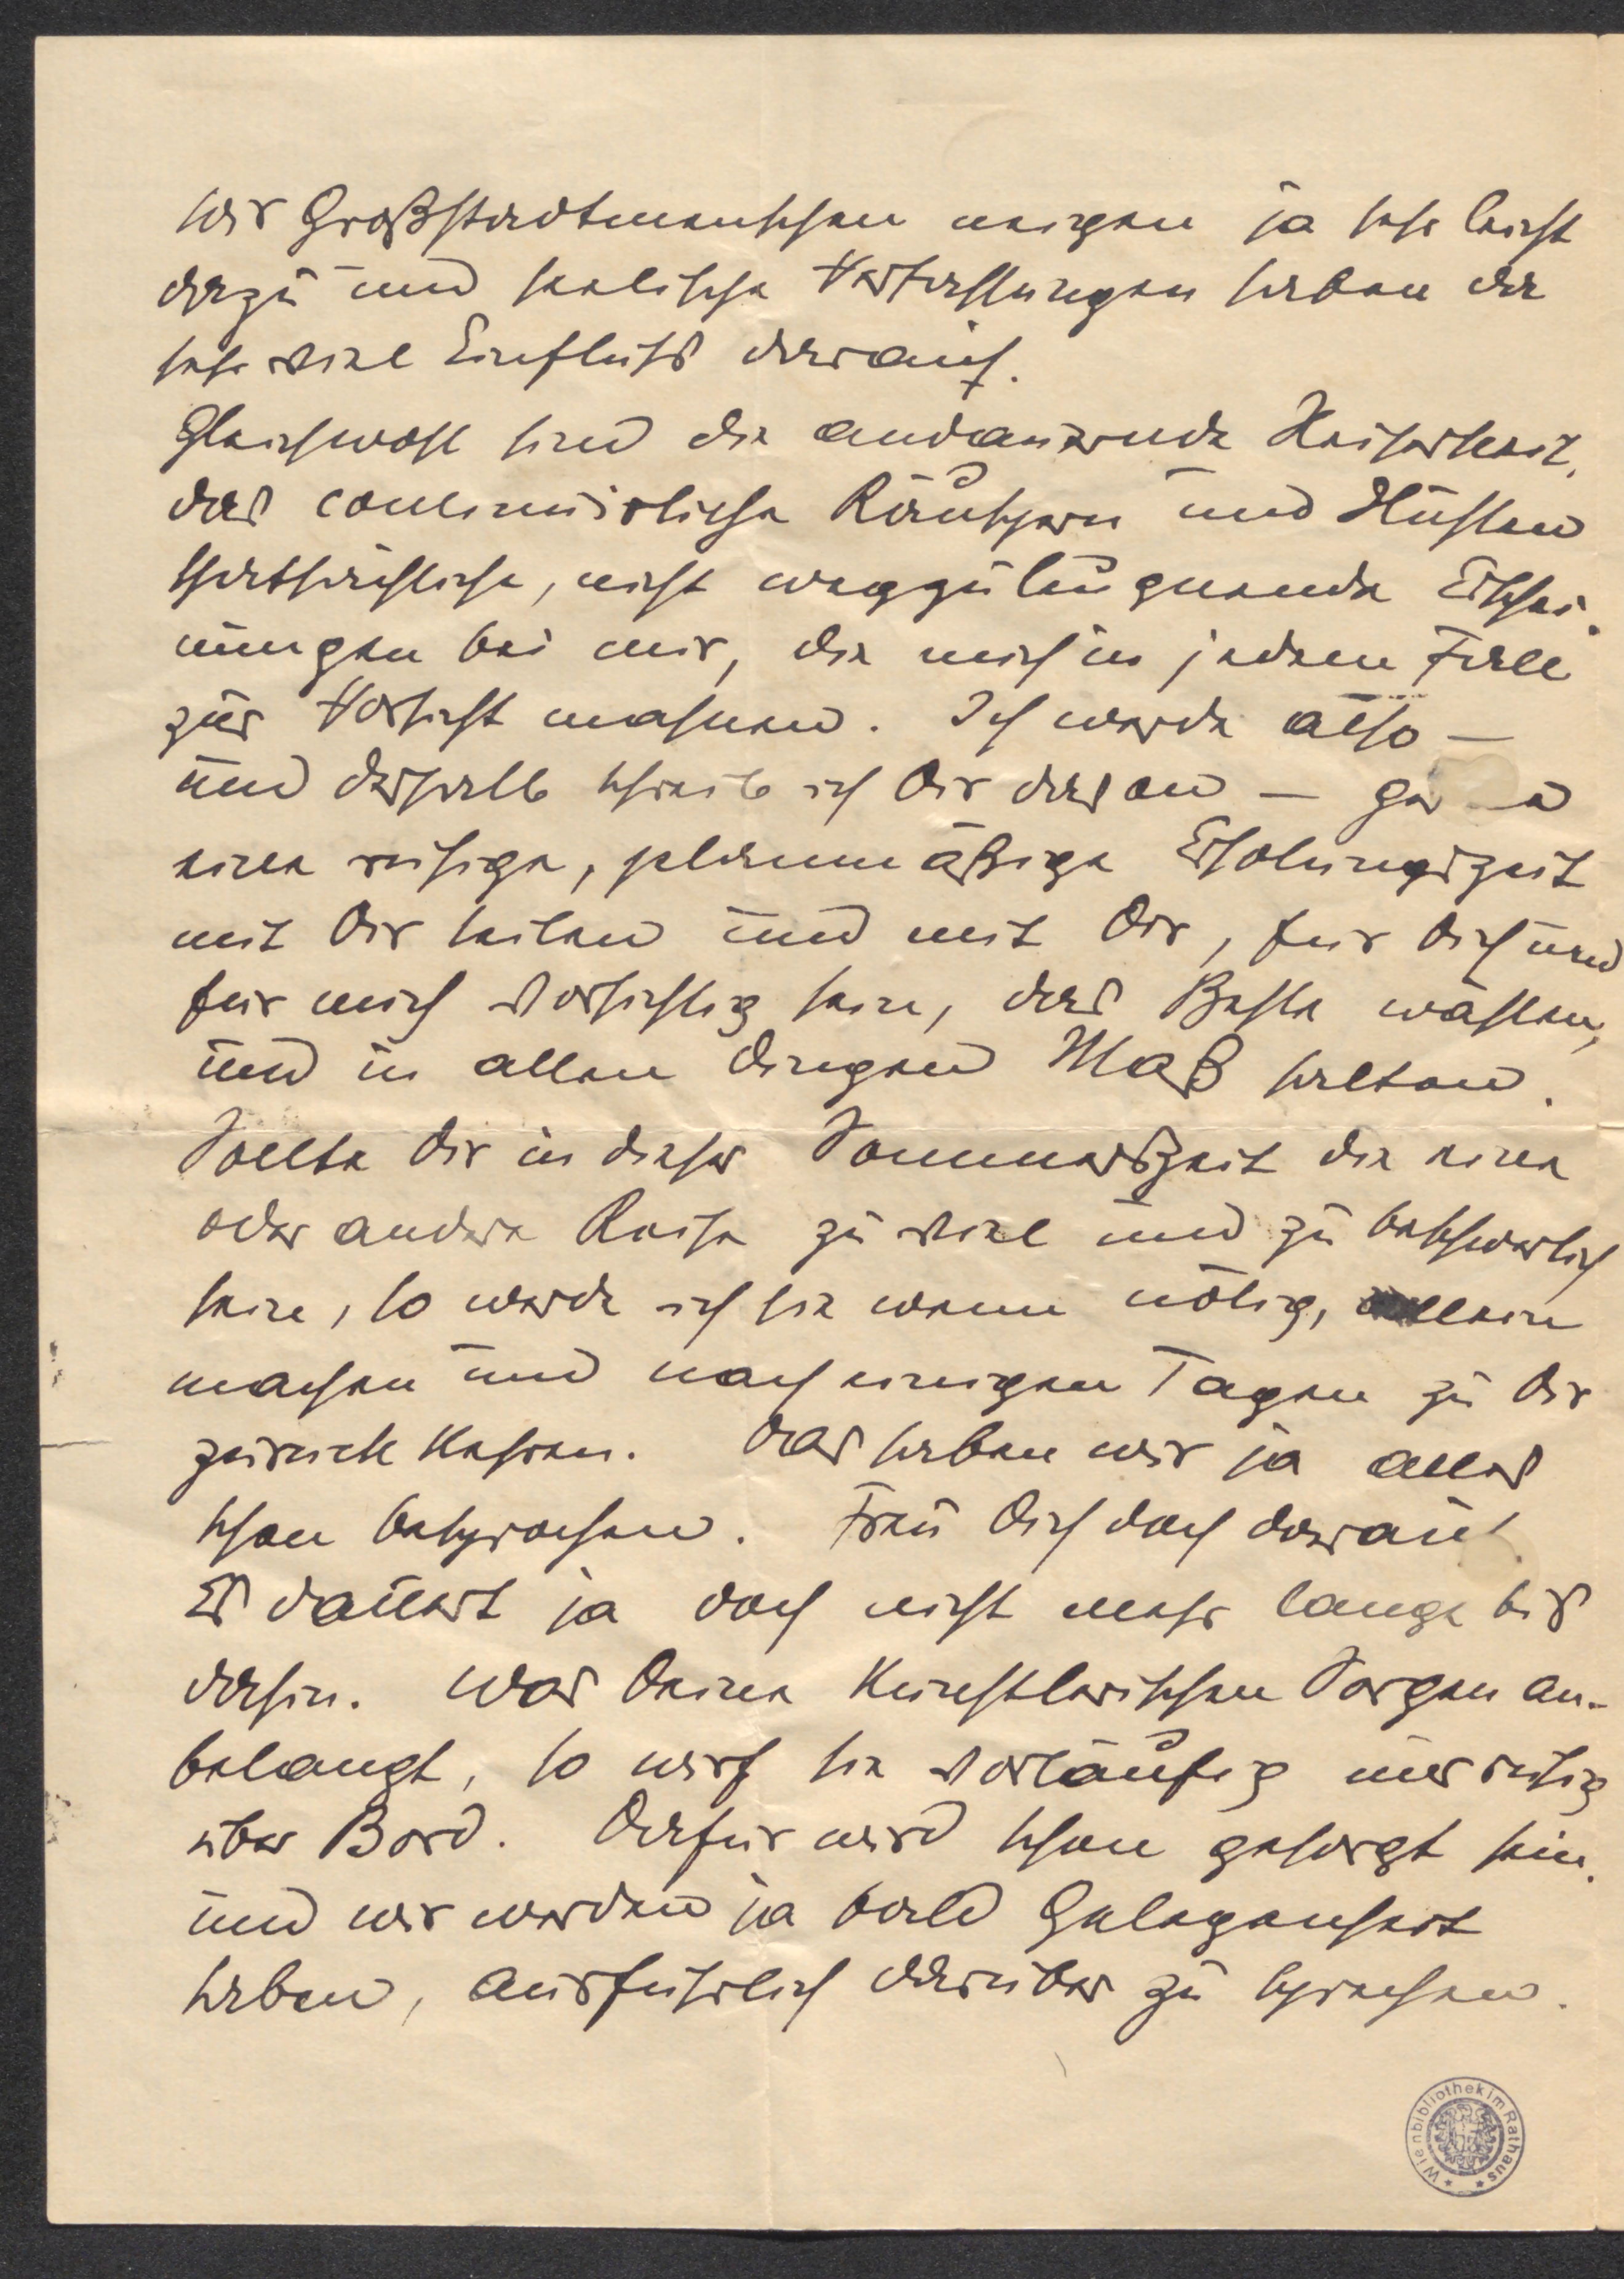 wir Großstadtmenschen neigen ja sehr leicht
dazu und seelische Verfassungen haben da
sehr viel Einfluss darauf.
Gleichwohl sind die andauernde Heiserkeit,
das continuirliche Räuspern und Husten
thatsächliche, nicht wegzuleugnende Erschei-
nungen bei mir, die mich in jedem Fall
zur Vorsicht mahnen. Ich werde also –
und deshalb schreib ich Dir davon –
eine ruhige, planmäßige Erholungszeit
mit Dir teilen und mit Dir, für Dich und
für mich vorsichtig sein, das Beste wählen,
und in allen Dingen Maß halten.
Sollte Dir in dieser Sommerszeit die eine
oder andere Reise zu viel und zu beschwerlich
sein, so werde ich sie wenn nötig, allein
machen und nach einigen Tagen zu Dir
zurück kehren. Das haben wir ja alles
schon besprochen. Freu Dich doch darauf.
Es dauert ja doch nicht mehr lange bis
dahin. Was Deine künstlerischen Sorgen an-
belangt, so wirf sie vorläufig nur ruhig
über Bord. Dafür wird schon gesorgt sein.
und wir werden ja bald Gelegenheit
haben, ausführlich darüber zu sprechen.
Wienbibliothek im Rathaus